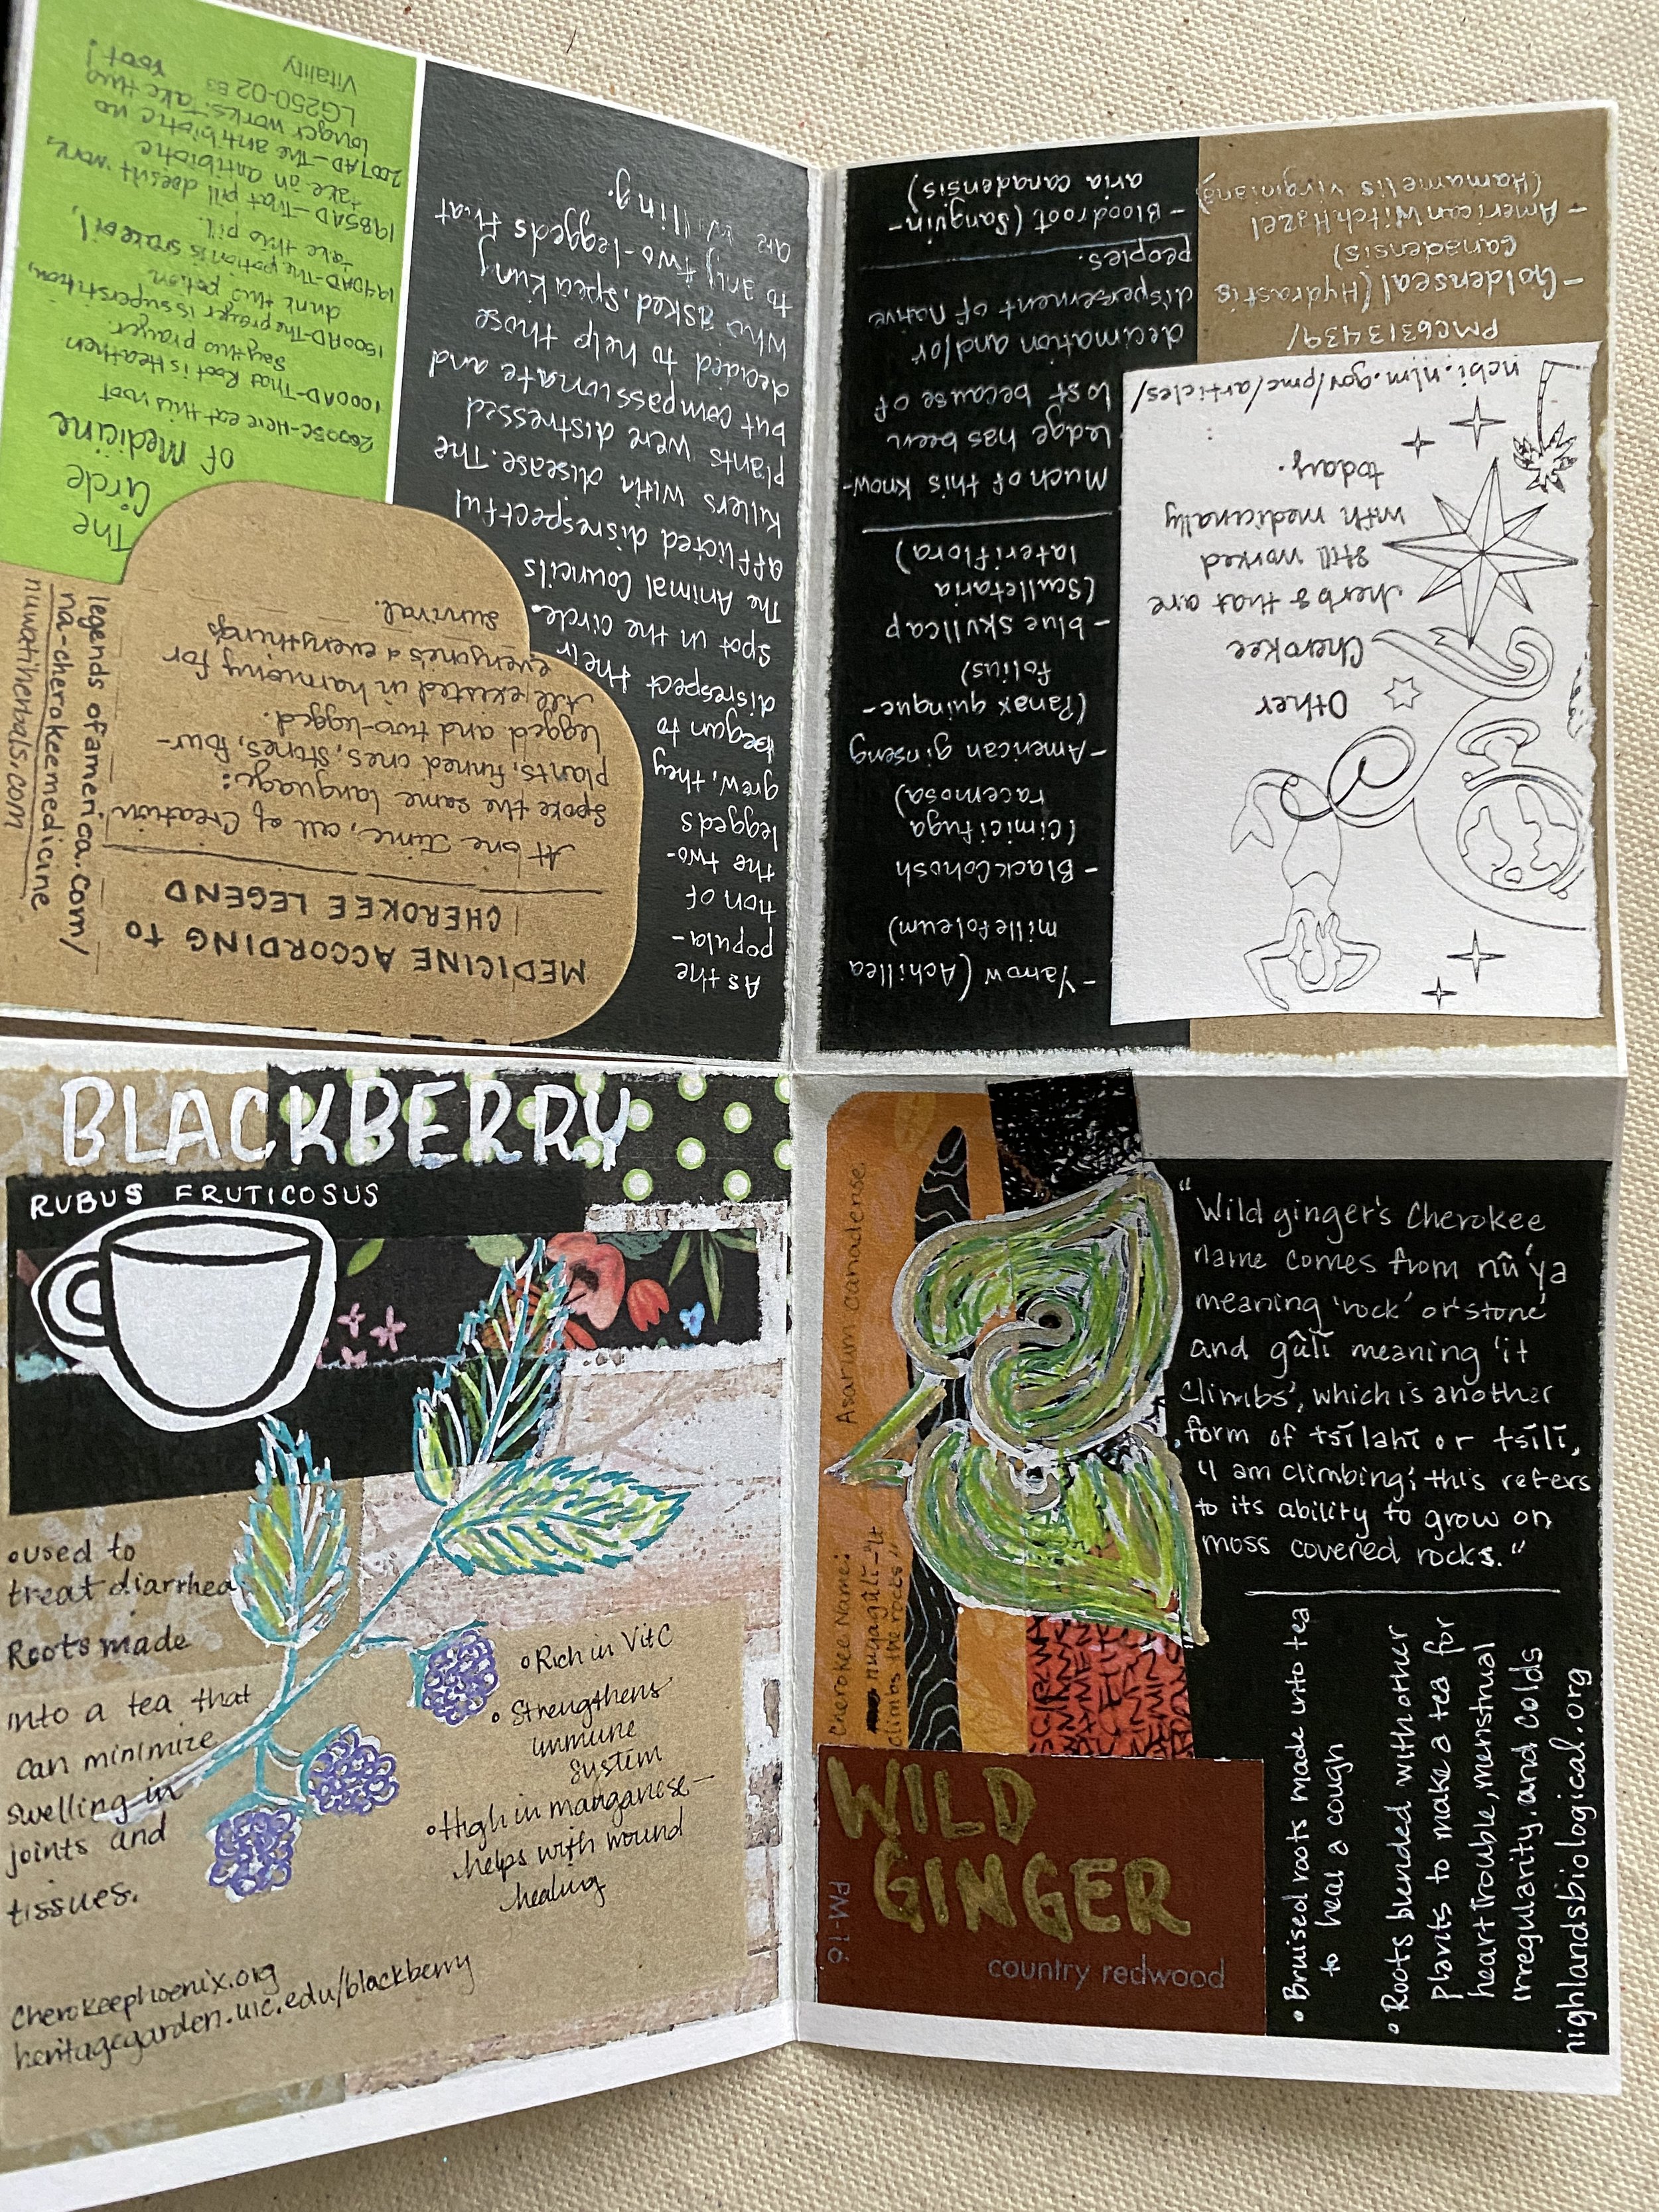 MEDICINE ACCORDING TO
CHEROKEE LEGEND
At one time, all of Creation
spoke the same language:
plants, finned ones, stones, four-
legged and two-legged.
All existed in harmony for
everyone's & everything's
survival.
legends of america.com/
na-cherokeemedicine
nuwatiherbals.com
As the
popula-
tion of
the two-
leggeds
grew, they
began to
disrespect their
spot in the circle.
The Animal Councils
afflicted disrespectful
killers with disease. The
plants were distressed
but compassionate and
decided to help those
who asked, speaking
to any two-leggeds that
are willing.
The
Circle
of Medicine
2000BC-Here eat this root
1000AD-That Root is Heathen.
Say this prayer.
1500AD-The prayer is superstition,
drink this potion
1940AD-The potion is snake oil,
take this pill.
1985AD-That pill doesn't work,
take an antibiotic
2007AD-The antibiotic no
longer works. Take this
root!
LG250-02 B3
Vitality
Other
Cherokee
herbs that are
still worked
with medicinally
today.
ncbi.nlm.gov/pmc/articles/
PMC6313439/
-Goldenseal (Hydrastis
Canadensis)
-American Witch Hazel
(Hamamelis virginiana)
-Yarrow (Achillea
millefoleum)
-Black Cohosh
(Cimicifuga
racemosa)
-American ginseng
(Panax quinque-
folius)
-blue skullcap
(Sculletaria
lateriflora)
Much of this know-
ledge has been
lost because of
decimation and/or
dispersement of native
peoples.
-Bloodroot (Sanguin-
aria canadensis)
BLACKBERRY
RUBUS FRUTICOSUS
used to
treat diarrhea
Roots made
into a tea that
can minimize
swelling in
joints and
tissues.
Rich in Vit C
Strengthens
immune
system
High in manganese—
helps with wound
healing
Cherokeephoenix.org
heritagegarden.uic.edu/blackberry
Asarum canadense
Cherokee Name:
nuyagûlĭ-"It
climbs the rocks"
WILD
GINGER
PM-16
country redwood
"Wild ginger's Cherokee
name comes from nûʹya
meaning 'rock' or 'stone'
and gûlĭ meaning 'it
climbs', which is another
form of tsĭlahĭ or tsĭlĭ,
'I am climbing'; this refers
to its ability to grow on
moss covered rocks."
• Bruised roots made into tea
to heal a cough
• Roots blended with other
plants to make a tea for
heart trouble, menstrual
irregularity, and colds
highlandsbiological.org